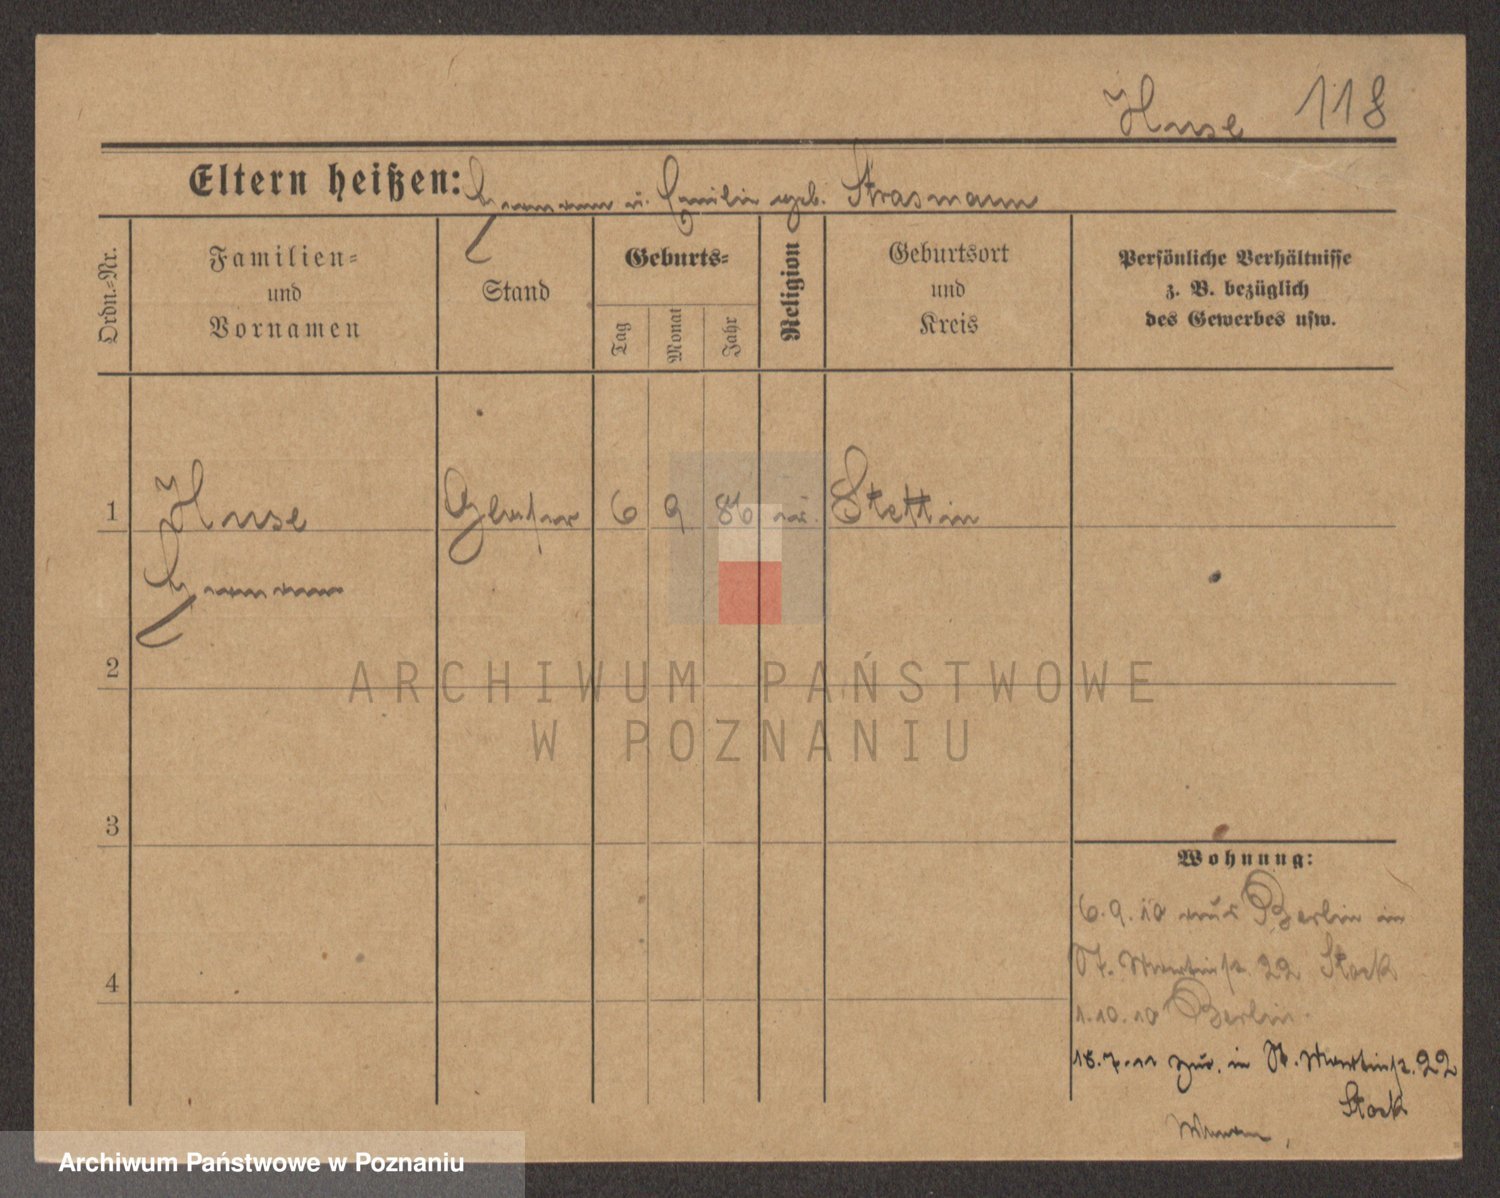 Hase 118
Eltern heißen: Hermann u. Emilie geb. Strasmann
Ordn.-Nr.
Familien-
und
Vornamen
Stand
Geburts-
Tag
Monat
Jahr
Religion
Geburtsort
und
Kreis
Persönliche Verhältnisse
z. B. bezüglich
des Gewerbes usw.
1 Hase Glaser 6 9 86 Stettin
Hermann
2
3
4
Wohnung:
6.9.10 aus Berlin in
St. Martinstr. 22 Stock
1.10.10 Berlin.
18.7.11 zur. in St. Martinstr. 22
Stock
ARCHIWUM PAŃSTWOWE
W POZNANIU
Archiwum Państwowe w Poznaniu